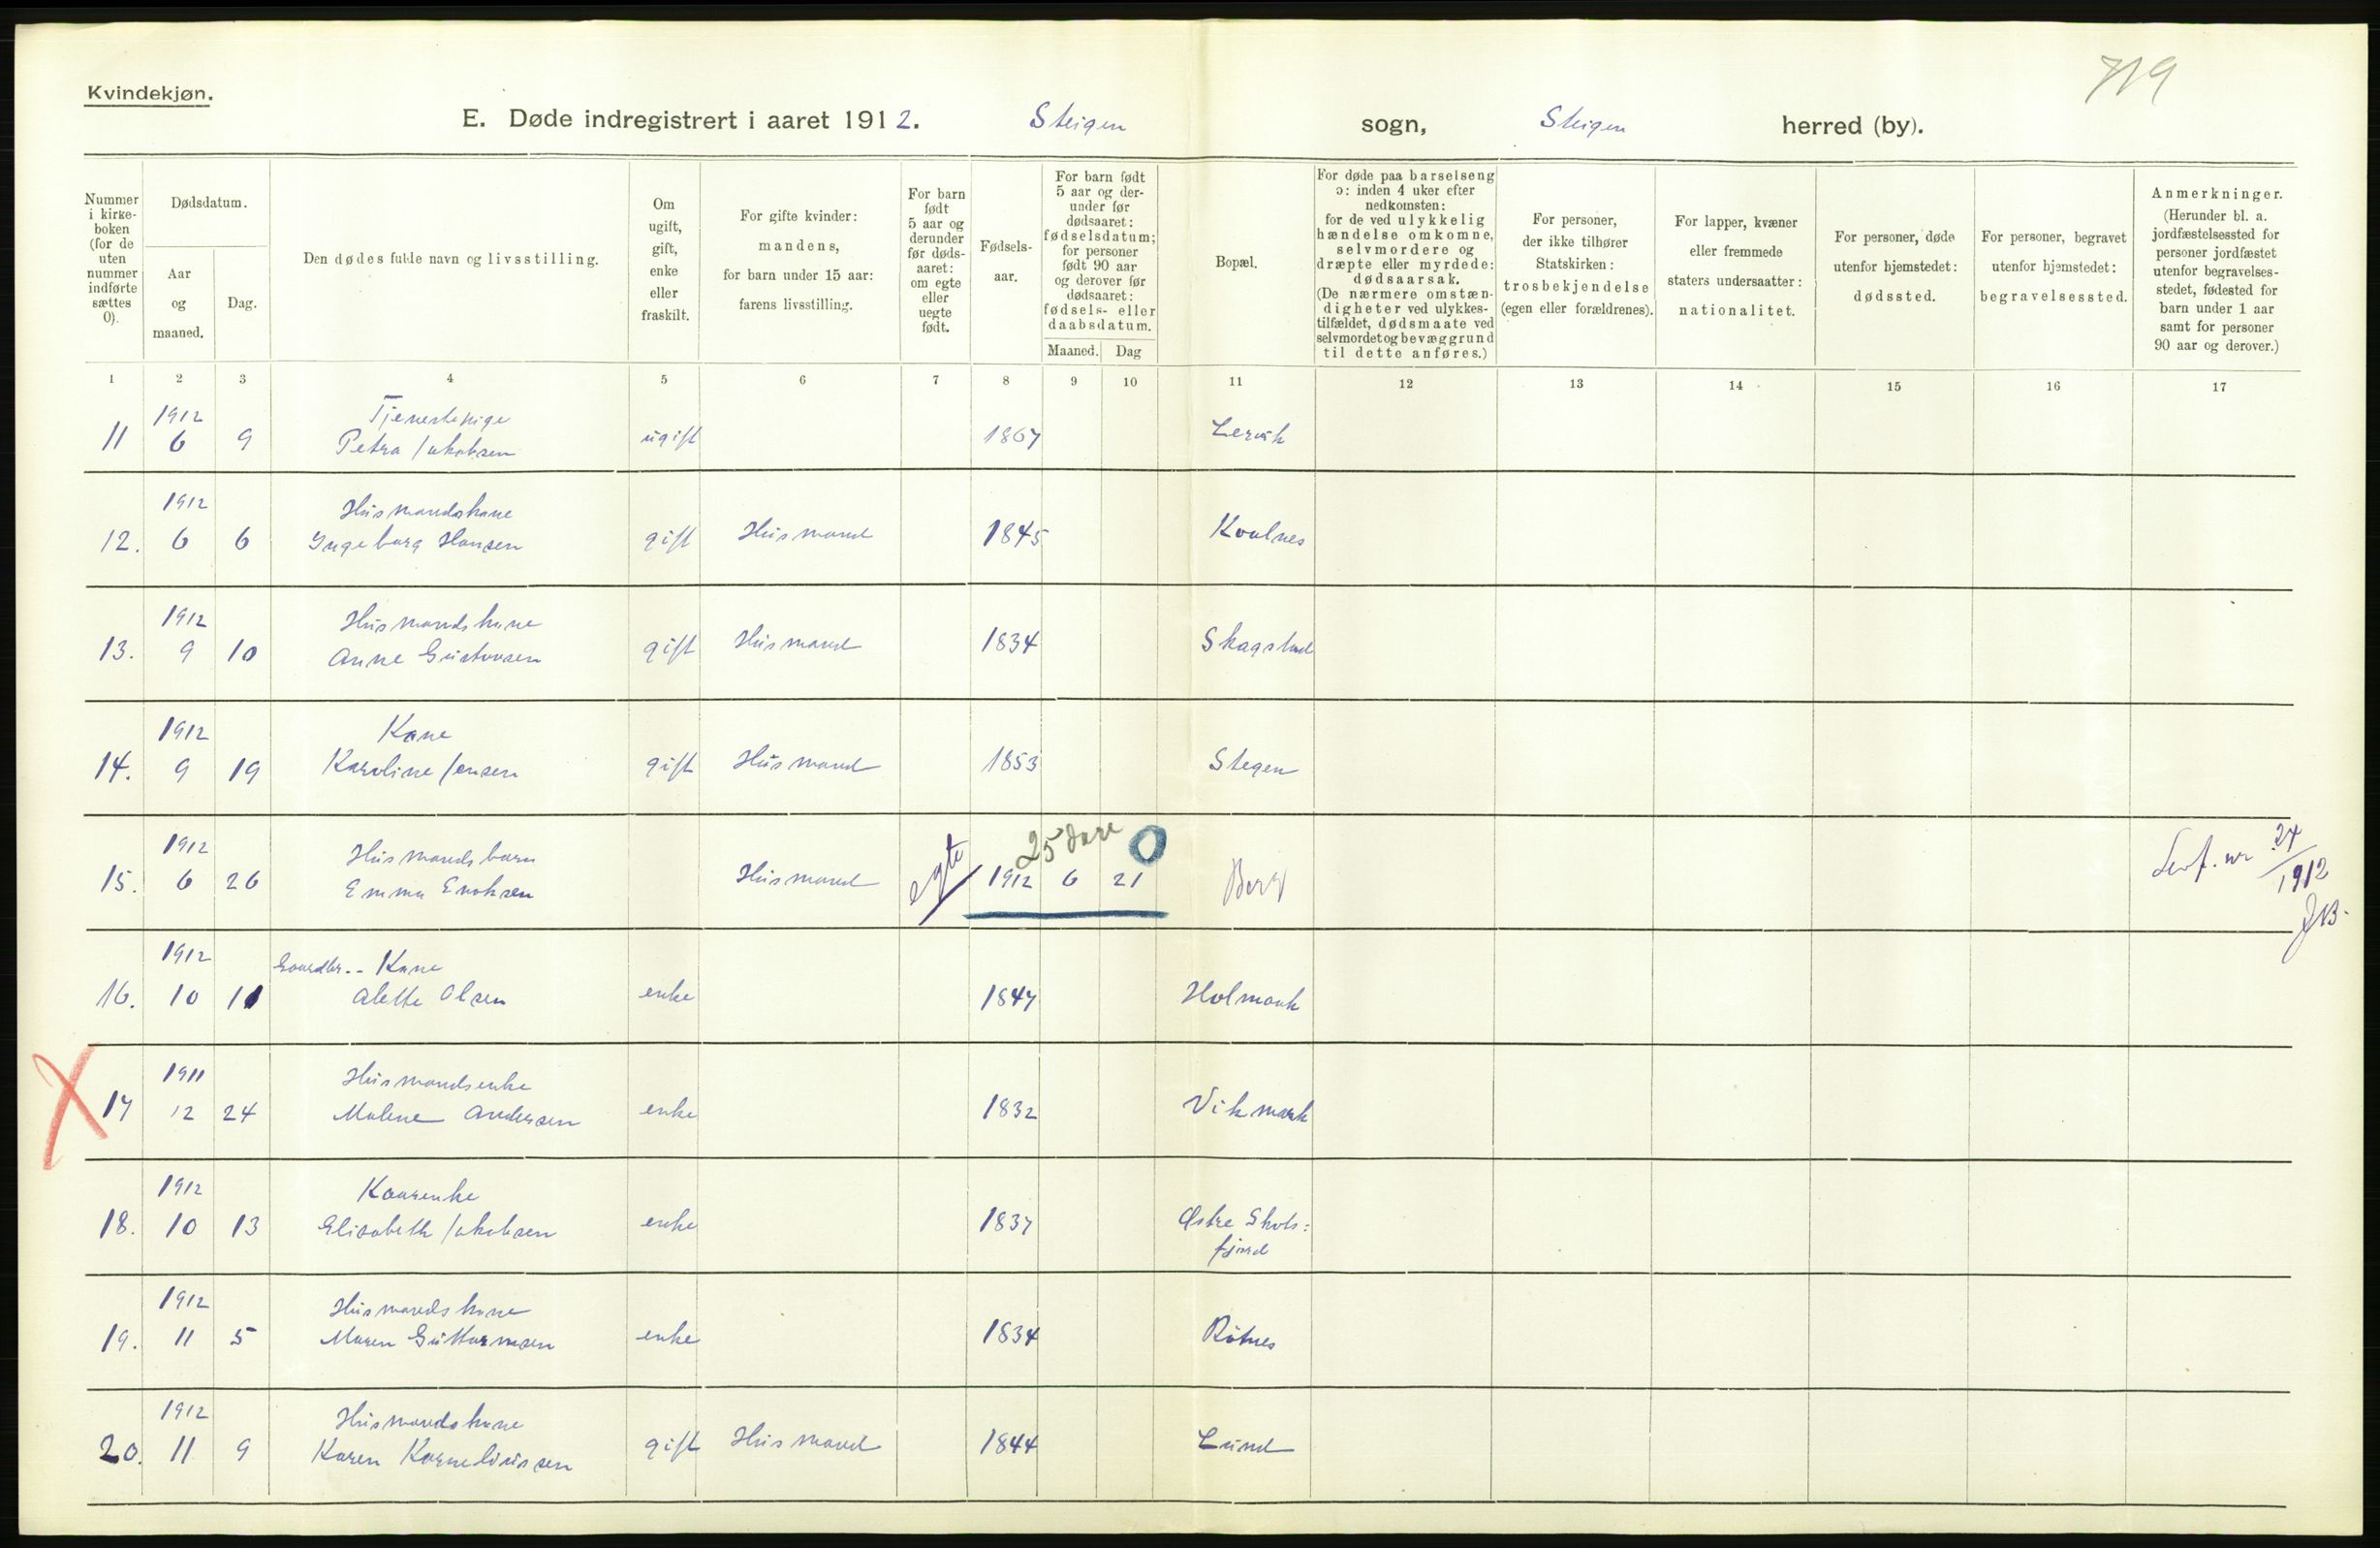 719
Kvindekjøn.
E. Døde indregistrert i aaret 1912. Steigen sogn, Steigen herred (by).
Nummer i kirkeboken (for de uten nummer indførte sættes 0).
Dødsdatum.
Aar og maaned.
Dag.
Den dødes fulde navn og livsstilling.
Om ugift, gift, enke eller fraskilt.
For gifte kvinder: mandens, for barn under 15 aar: farens livsstilling.
For barn født 5 aar og derunder før dødsaaret: om egte eller uegte født.
Fødselsaar.
For barn født 5 aar og derunder før dødsaaret: fødselsdatum; for personer født 90 aar og derover før dødsaaret: fødsels- eller daabsdatum.
Maaned. Dag
Bopæl.
For døde paa barselseng ɔ: inden 4 uker efter nedkomsten: for de ved ulykkelig hændelse omkomne, selvmordere og dræpte eller myrdede: dødsaarsak. (De nærmere omstændigheter ved ulykkestilfældet, dødsmaate ved selvmordet og bevæggrund til dette anføres.)
For personer, der ikke tilhører Statskirken: trosbekjendelse (egen eller forældrenes).
For lapper, kvæner eller fremmede staters undersaatter: nationalitet.
For personer, døde utenfor hjemstedet: dødssted.
For personer, begravet utenfor hjemstedet: begravelsessted.
Anmerkninger. (Herunder bl. a. jordfæstelsessted for personer jordfæstet utenfor begravelsesstedet, fødested for barn under 1 aar samt for personer 90 aar og derover.)
1 2 3 4 5 6 7 8 9 10 11 12 13 14 15 16 17
1912 Tjenestepige
11 6 9 Petra Jakobsen ugift 1867 Lervik
1912 Husmandskone
12. 6 6 Ingeborg Hansen gift Husmand 1845 Kvalnes
1912 Husmandskone
13. 9 10 Anne Gustavsen gift Husmand 1834 Skagstad
1912 Kone
14. 9 19 Karoline Jensen gift Husmand 1853 Stegen
1912 Husmandsbarn 25 dare 0
15. 6 26 Emma Enoksen Husmand egte 1912 6 21 Borg Levf. nr 24/1912
JB.
1912 Gaardbr.- Kone
16. 10 11 Alette Olsen enke 1847 Holmaak
1911 Husmandsenke
X 17 12 24 Malene Andersen enke 1832 Vikmark
1912 Kaarenke
18. 10 13 Elisabeth Jakobsen enke 1837 Østre Skots:
fjord
1912 Husmandskone
19. 11 5 Maren Guttormsen enke 1834 Røtnes
1912 Husmandskone
20. 11 9 Karen Korneliussen gift Husmand 1844 Lund